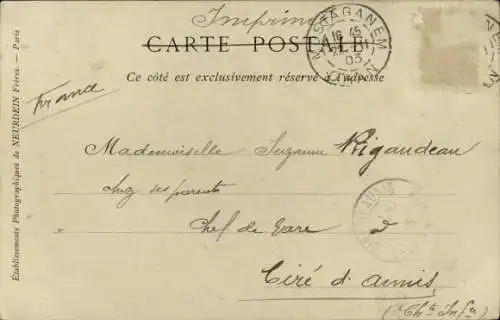 Imprimé
CARTE POSTALE
MOSTAGANEM
16 45
03
ORAN
Ce côté est exclusivement réservé à l'adresse
France
Mademoiselle Suzanne Rigaudeau
Chez ses parents
Chef de Gare à
Ciré d'Aunis
(Chte Infre)
Etablissements Photographiques de NEURDEIN Frères. — Paris